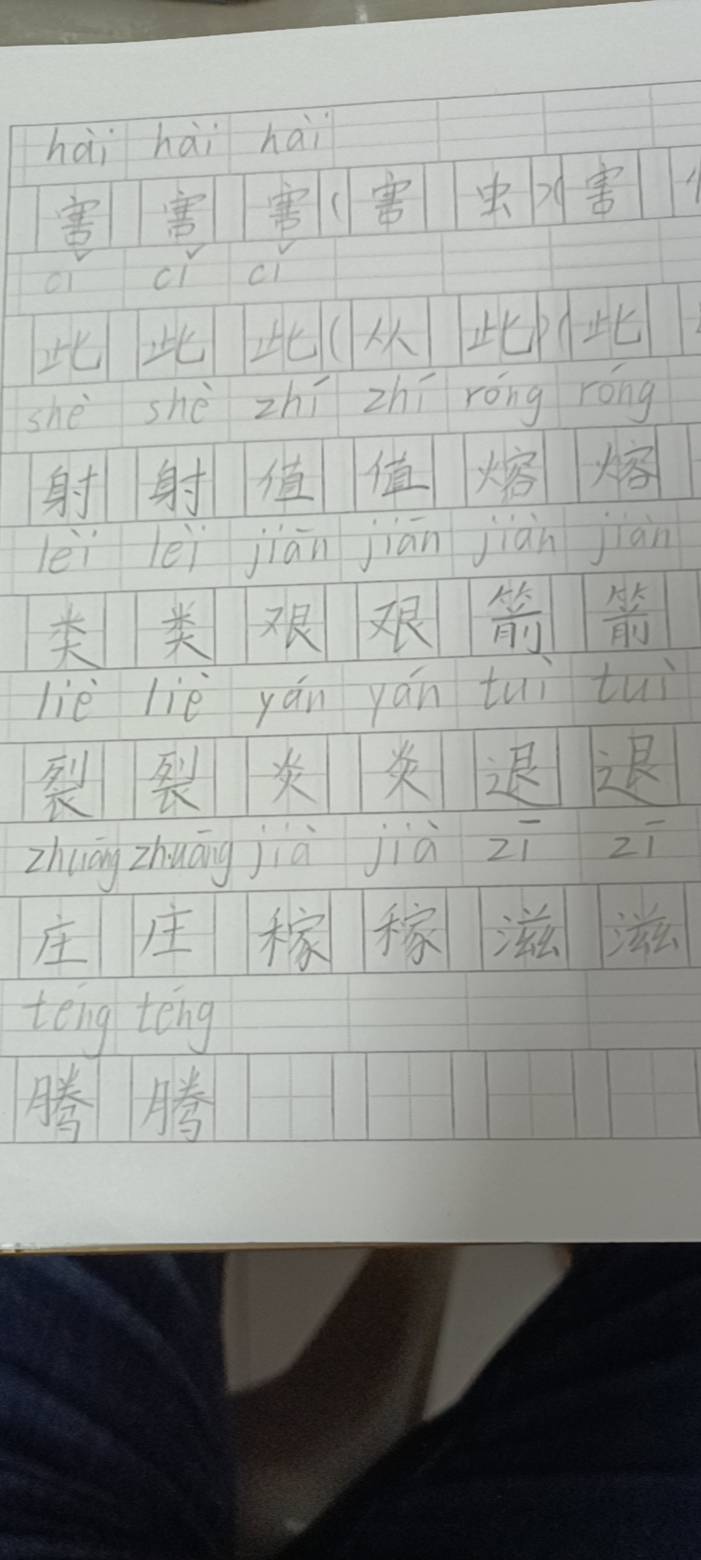 hài hài hài
害 害 害 ( 害 虫 ) ( 害
cǐ cǐ cǐ
此 此 此 ( 从 此 ) ( 此
shè shè zhí zhí róng róng
射 射 值 值 熔 熔
lèi lèi jiān jiān jiàn jiàn
类 类 艰 艰 箭 箭
liè liè yán yán tuì tuì
裂 裂 炎 炎 退 退
zhuāng zhuāng jià jià zī zī
庄 庄 稼 稼 滋 滋
téng téng
腾 腾